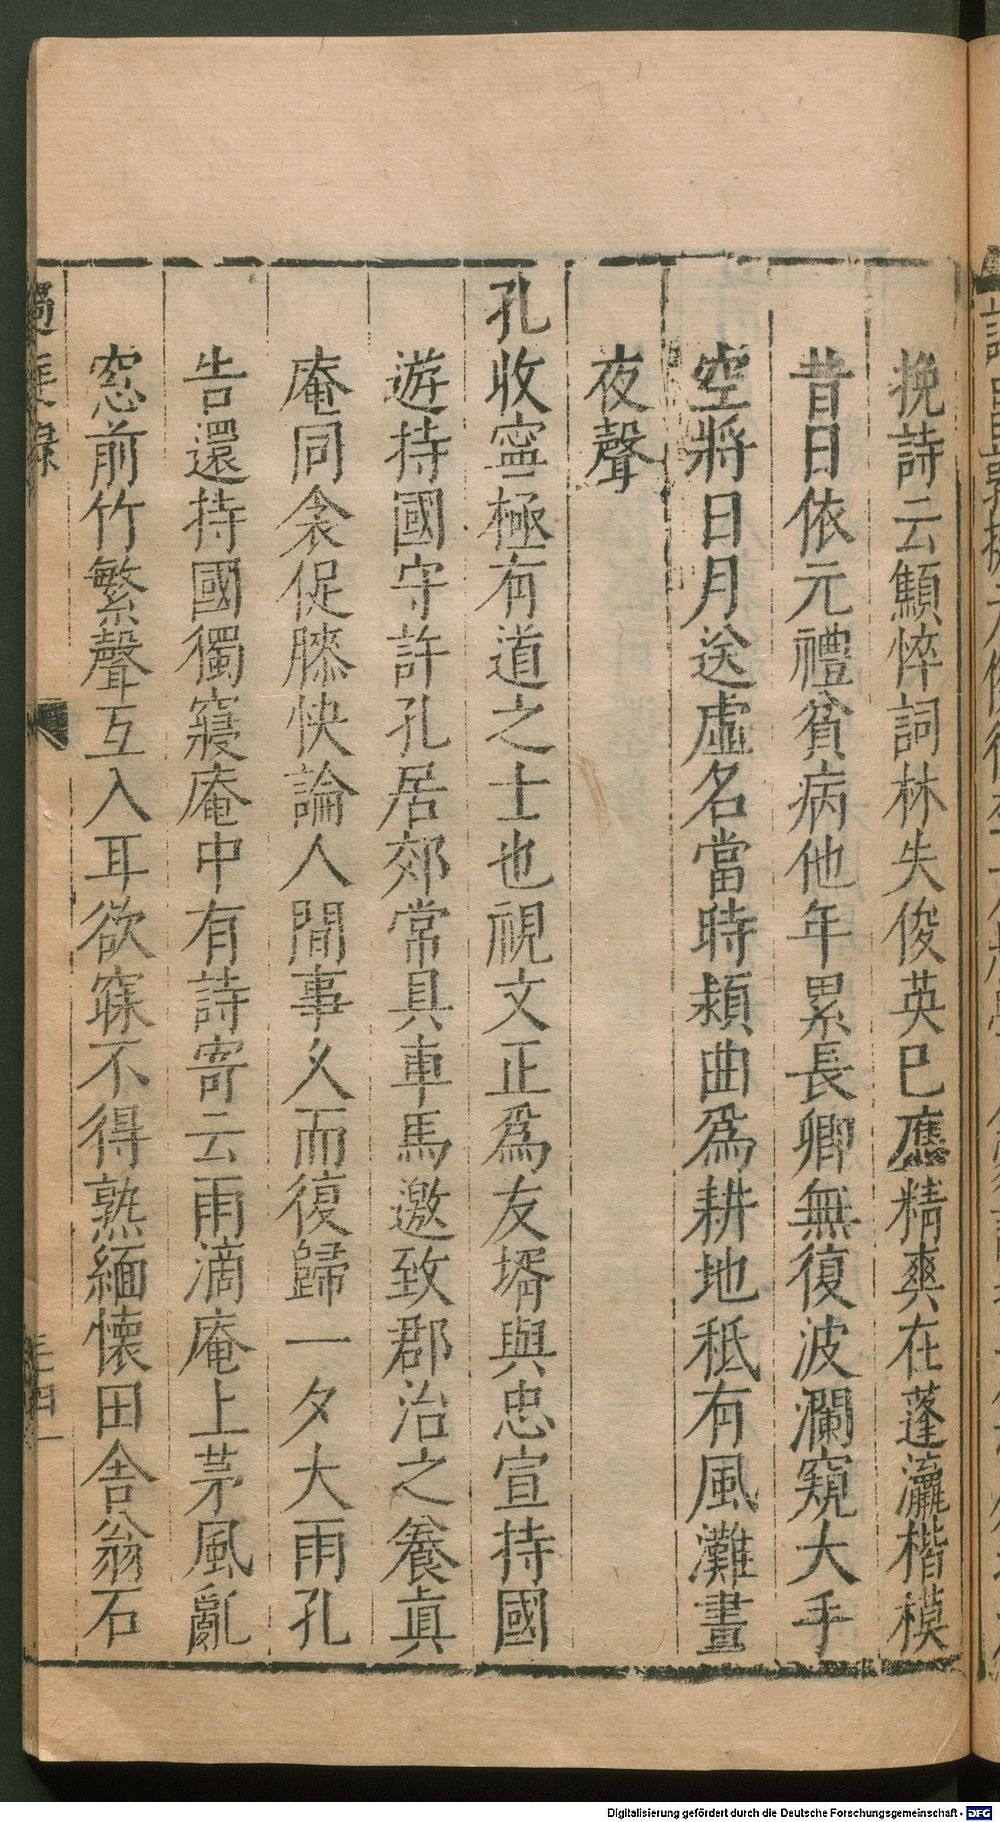 挽詩云顦悴詞林失俊英巳應精爽在蓬瀛楷模
昔日依元禮貧病他年累長卿無復波瀾窺大手
空將日月送虛名當時潁曲爲耕地秪有風灘晝
夜聲
孔收寧極有道之士也視文正爲友壻與忠宣持國
遊持國守許孔居郊常具車馬邀致郡治之養眞
庵同衾促膝快論人間事久而復歸一夕大雨孔
告還持國獨寢庵中有詩寄云雨滴庵上茅風亂
窓前竹繁聲互入耳欲寐不得熟緬懷田舍翁石
過庭錄
Digitalisierung gefördert durch die Deutsche Forschungsgemeinschaft - DFG